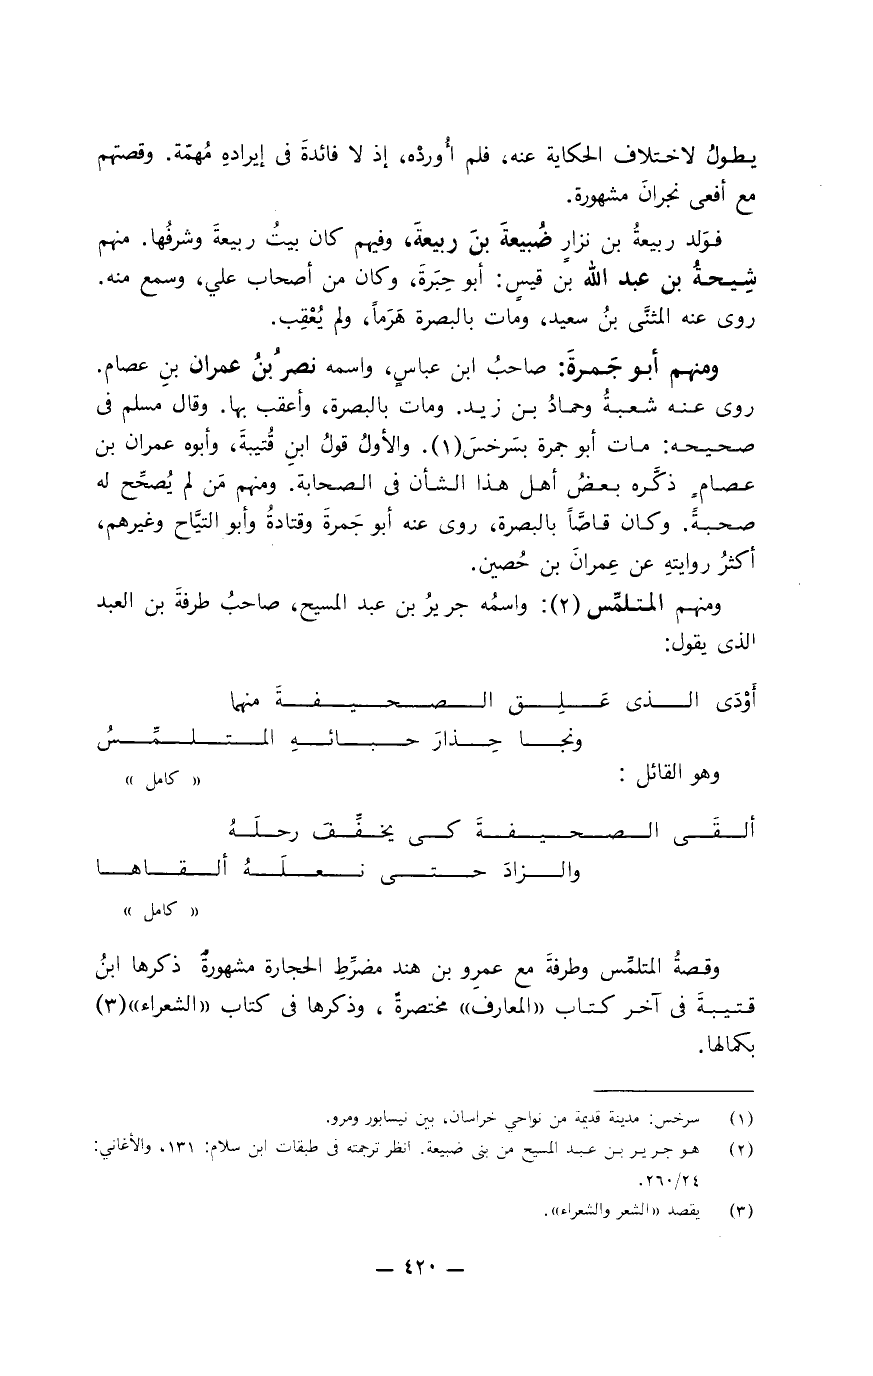 يطولُ لاختلاف الحكاية عنه، فلم أُوردْه، إذ لا فائدةَ فى إيرادهِ مُهمّة. وقصتهم
مع أفعى نجرانَ مشهورة.
فوَلد ربيعةُ بن نزارٍ ضُبيعةَ بنَ ربيعةَ، وفيهم كان بيتُ ربيعةَ وشرفُها. منهم
شِيحةُ بن عبد الله بن قيسٍ: أبو حِبَرةَ، وكان من أصحاب علي، وسمع منه.
روى عنه المثنَّى بنُ سعيد، ومات بالبصرة هَرَماً، ولم يُعْقِب.
ومنهم أبو جَمرةَ: صاحبُ ابن عباسٍ، واسمه نصرُ بنُ عمران بنِ عصام.
روى عنه شعبةُ وحمادُ بن زيد. ومات بالبصرة، وأعقب بها. وقال مسلم فى
صحيحه: مات أبو جمرة بسَرخسَ(١). والأولُ قولُ ابنِ قُتيبةَ، وأبوه عمران بن
عصامٍ ذكَره بعضُ أهل هذا الشأن فى الصحابة. ومنهم مَن لم يُصحِّح له
صحبةً. وكان قاضاًّ بالبصرة، روى عنه أبو جَمرةَ وقتادةُ وأبو التيَّاح وغيرهم،
أكثرُ روايتهِ عن عِمرانَ بن حُصين.
ومنهم المتلمِّس (٢): واسمُه جريرُ بن عبد المسيح، صاحبُ طرفةَ بن العبد
الذى يقول:
أَوْدَى الذى عَلِق الصحيفةَ منهما
ونجا حِذارَ حبائهِ المتلمِّسُ
وهو القائل :
« كامل »
ألقَى الصحيفةَ كى يخفِّفَ رحلَهُ
والزادَ حتى نعلَهُ ألقاها
« كامل »
وقصةُ المتلمِّس وطرفةَ مع عمرِو بن هند مضرِّطِ الحجارة مشهورةٌ ذكرها ابنُ
قتيبةَ فى آخر كتاب «المعارف» مختصرةً ، وذكرها فى كتاب «الشعراء»(٣)
بكمالها.
(١) سرخس: مدينة قديمة من نواحي خراسان، بين نيسابور ومرو.
(٢) هو جرير بن عبد المسيح من بنى ضبيعة. انظر ترجمته فى طبقات ابن سلام: ١٣١، والأغاني:
٢٦٠/٢٤.
(٣) يقصد «الشعر والشعراء».
— ٤٢٠ —